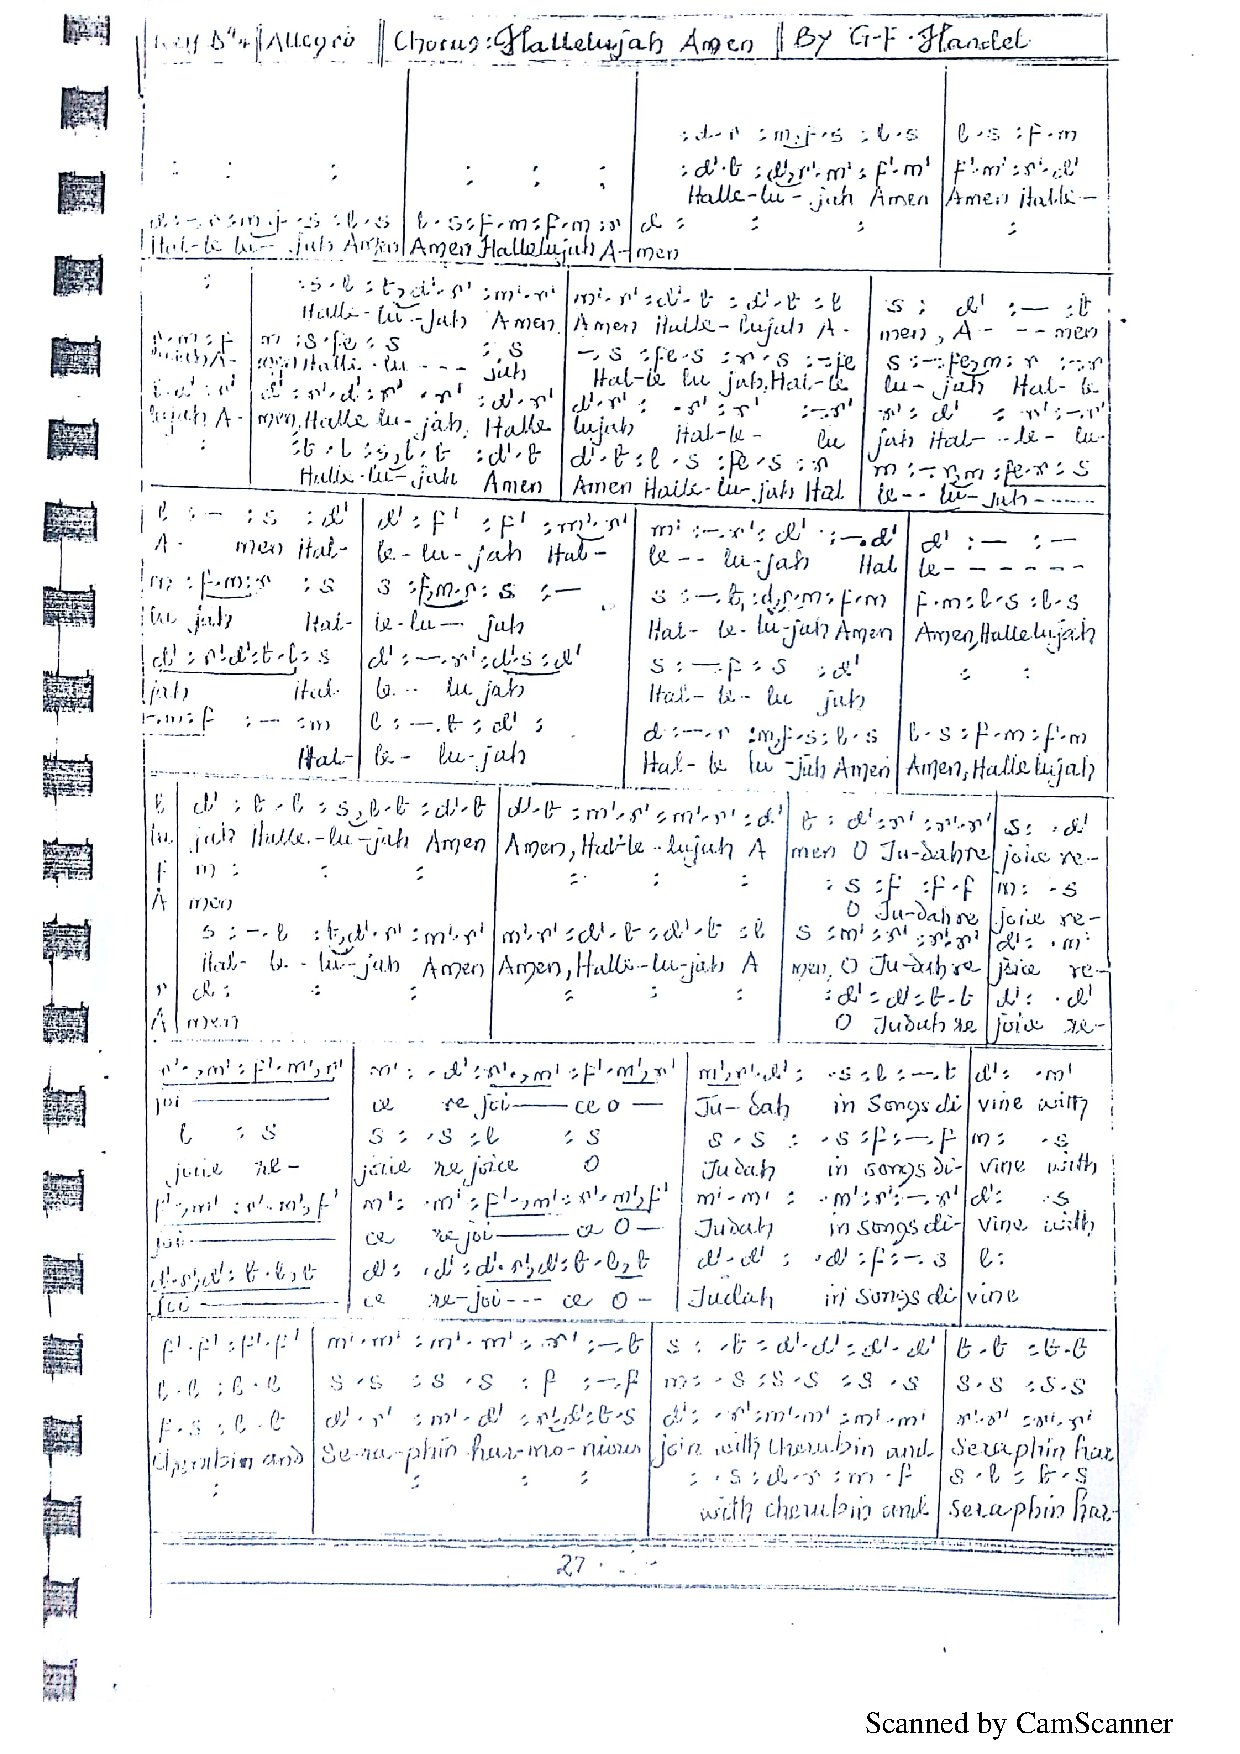 Key D 4 || Allegro || Chorus: Hallelujah Amen || By G-F. Handel
:d·r :m,f·s :l·s | l·s :f·m
: : : : : :d'·t :d',r'·m' :f'·m' | f'·m' :r'·d'
Halle-lu-jah Amen | Amen Halle-
d :-·r :m,f·s :l·s | l·s :f·m :f·m :r | d : : :
Hal-le lu- jah Amen | Amen Hallelujah A- | men
: | :s·l :t,d'·r' :m'·r' | m'·r' :d'·t :d'·t :l | s : d' :— :t
Halle-lu-jah Amen | Amen Halle-lujah A- | men, A- -- men
m :s·fe :s : s | -·s :fe·s :r·s :-·fe | s :-·fe,m :r :-·r
Halle-lu --- jah | Hal-le lu jah, Hal-le | lu- jah Hal- le
lujah A- | men, Halle lu-jah, Halle | lujah Hal-le- lu | jah Hal--le-lu-
: | :t·l :s,l·t :d'·t | d'·t :l·s :fe·s :r | m :-·r,m :fe·r :s
Halle-lu-jah Amen | Amen Halle-lu-jah Hal | le-- lu-jah------
l :— :s :d' | d' :f' :f' :m'·r' | m' :-·r' :d' :-·d' | d' :— :—
A- men Hal- | le-lu-jah Hal- | le-- lu-jah Hal | le------
m :f·m :r :s | s :f,m·r :s :— | s :-·t, :d,r·m :f·m | f·m :l·s :l·s
lu jah Hal- | le-lu— jah | Hal- le-lu-jah Amen | Amen, Hallelujah
d' :r'·d' :t·l :s | d' :-·r' :d'·s :d' | s :-·f :s :d' | : :
jah Hal- | le-- lu jah | Hal-le-lu jah
:f :— :m | l :-·t :d' : | d :-·r :m,f·s :l·s | l·s :f·m :f·m
Hal- | le- lu-jah | Hal-le lu-jah Amen | Amen, Hallelujah
l | d' :t·l :s,l·t :d'·t | d'·t :m'·r' :m'·r' :d' | t :d' :r' :r'·r' | s : ·d'
lu | jah Halle-lu-jah Amen | Amen, Hal-le-lujah A | men O Ju-dah re | joice re-
f | m : : : | : : : | :s :f :f·f | m : ·s
A | men | O Ju-dah re | joice re-
s :-·l :t,d'·r' :m'·r' | m'·r' :d'·t :d'·t :l | s :m' :r' :r'·r' | d' : ·m'
Hal-le-lu-jah Amen | Amen, Halle-lu-jah A | men, O Ju-dah re | joice re-
r | d : : : | : : : | :d' :d' :t·t | d' : ·d'
A | men | O Judah re | joice re-
r'·,m' :f'·m',r' | m' : ·d' :r'·,m' :f'·m',r' | m',r'·d' : ·s :l :-·t | d' : ·m'
joi——— | ce re joi—— ce O — | Ju-dah in Songs di | vine with
l :s | s : ·s :l :s | s·s : ·s :f :-·f | m : ·s
joice re- | joice re joice O | Judah in songs di- | vine with
f'·,m' :r'·m',f' | m' : ·m' :f'·,m' :r'·m',f' | m'·m' : ·m' :r' :-·r' | d' : ·s
joi——— | ce re joi—— ce O — | Judah in songs di- | vine with
d'·r',d' :t·l,t | d' : ·d' :d'·r',d' :t·l,t | d'·d' : ·d' :f :-·s | l :
joi——— | ce re-joi--- ce O - | Judah in songs di | vine
f'·f' :f'·f' | m'·m' :m'·m' :r' :-·t | s : ·t :d'·d' :d'·d' | t·t :t·t
l·l :l·l | s·s :s·s :f :-·f | m : ·s :s·s :s·s | s·s :s·s
f·s :l·t | d'·r' :m'·d' :r',d' :t·s | d' : ·r' :m'·m' :m'·m' | r'·r' :r'·r'
Cherubin and | Sera-phin har-mo-nious | join with cherubin and | Seraphin har
: | : : : | : ·s :d·r :m·f | s·l :t·s
with cherubin and | seraphin har-
27
Scanned by CamScanner